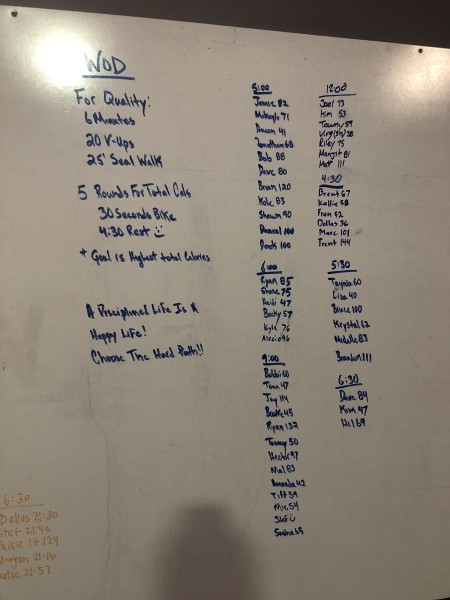 WOD
For Quality:
6 Minutes
20 V-Ups
25' Seal Walk
5 Rounds For Total Cals
30 Seconds Bike
4:30 Rest
* Goal is Highest total Calories
A Disciplined Life Is A
Happy Life!
Choose The Hard Path!!
5:00
Jamie 82
Mikayla 71
41
Jonathan 68
Bob 88
Dave 80
Brian 120
Kole 83
Shawn 90
100
Derek 100
6:00
Ryan 85
Shane 75
Heidi 47
Becky 57
Kyle 76
Alecia 46
9:00
Bobbi 60
Tom 47
Jay 114
Brooke 45
Ryan 132
Tammy 50
Hector 97
Mal 83
Amanda 42
Tiff 59
Mic 54
Stef
Sasha 65
12:00
Joel 73
Kim 53
Tawny 59
38
Riley 75
Margit 81
Matt 111
4:30
Brent 67
Kallie 52
Fran 52
Dallas 36
Marc 101
Trent 144
5:30
Taynia 60
Lisa 40
Bruce 100
Krystal 62
Michelle 83
Brandon 111
6:30
Dave 84
Kim 47
Hil 69
6:30
Dallas 21:30
Stef 21:40
1+124
Morgan 21:16
21:57